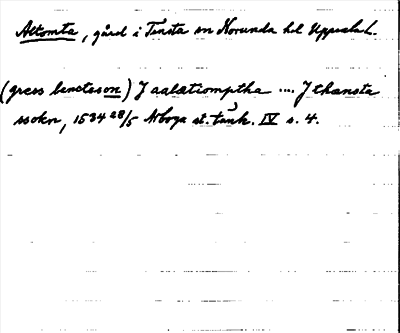 Altomta, gård i Tensta sn Norunda hd Uppsala l.
(gress benctsson) J aalætiomptha .... J thænsta
ssokn, 1534 28/5 Arboga st. tänk. IV s. 4.